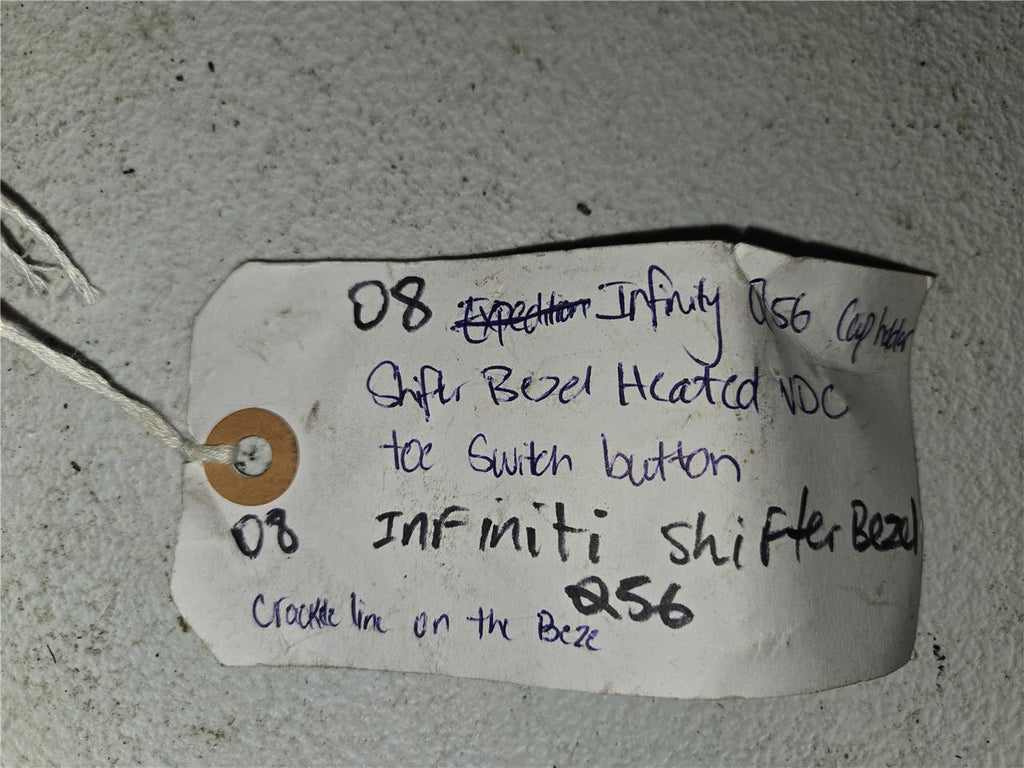 08 Expedition Infinity Q56 Cup holder
Shifter Bezel Heated VDC
toc Switch button
08 Infiniti shifter Bezel
Q56
Crackde line on the Beze